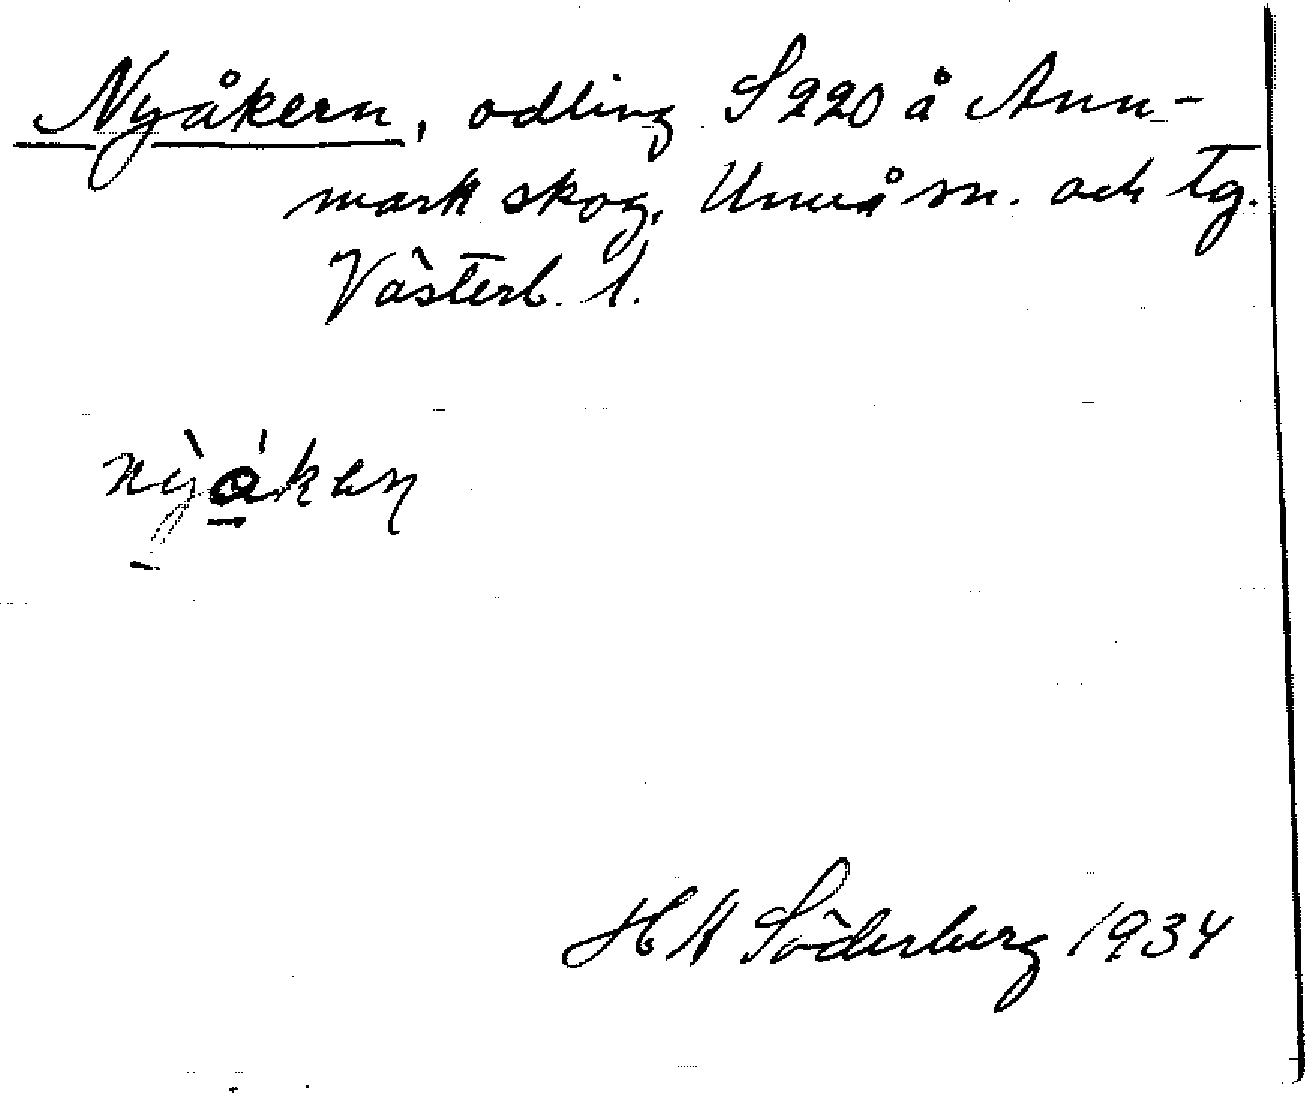 Nyåkern, odling S220 å Ann-
mark skog, Umeå sn. och tg.
Västerb. l.
H Söderberg 1934